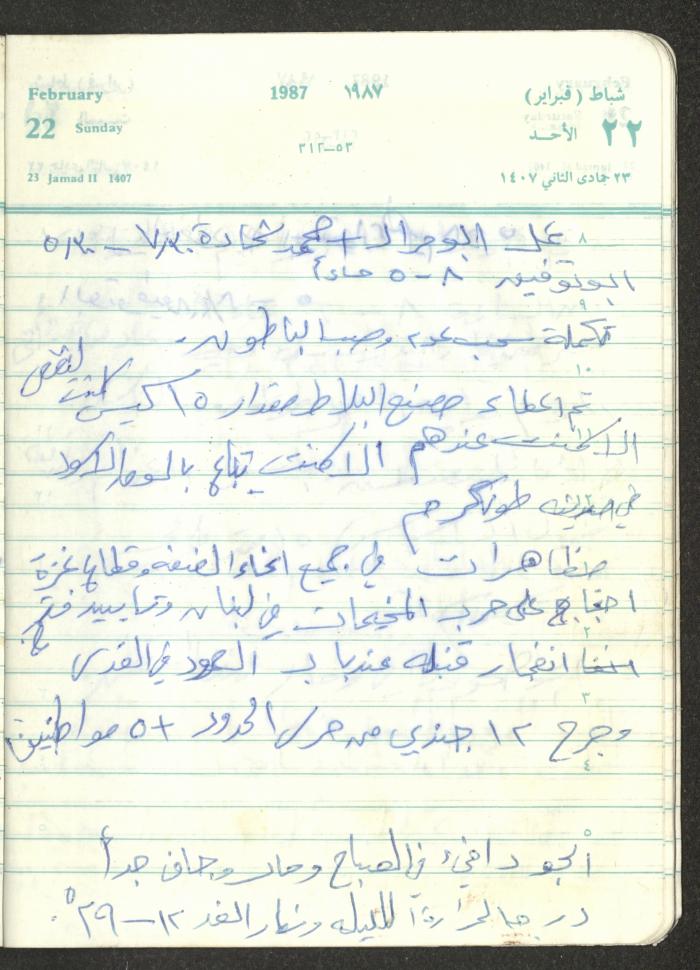 February
1987 ١٩٨٧
شباط (فبراير)
22 Sunday
٢٢ الأحد
٥٣–٣١٢
23 Jamad II 1407
٢٣ جمادى الثاني ١٤٠٧
٨
عمل ابو مراد + محمد شحادة ٧٫٣٠ – ٥٫٣٠
ابو توفيق ٨ – ٥ مساءً
٩
تكملة سحب عدد وصب الباطون.
١٠
تم اعطاء مصنع البلاط مقدار ١٥ كيس اسمنت لنقص
الاسمنت عندهم الاسمنت تباع بالسوق السوداء
في مدينة طولكرم
مظاهرات في جميع انحاء الضفة وقطاع غزة
احتجاج على حرب المخيمات في لبنان وتأييد فتح
٢
انفجار قنبلة عند باب العمود في القدس
٣
وجرح ١٢ جندي من حرس الحدود + ٥ مواطنين
٤
٥
الجو دافيء في الصباح وحار وجاف جداً
درجة الحرارة الليلة ونهار الغد ١٢ – ٢٩°.